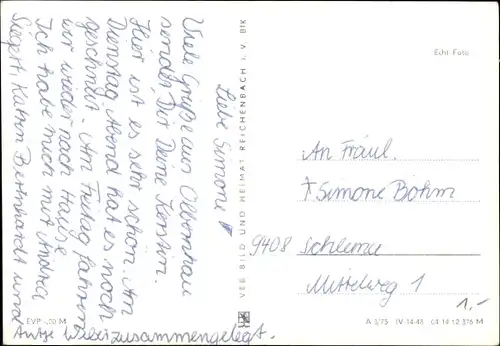 Liebe Simone!
Viele Grüße aus Olbernhau
sendet Dir Deine Kerstin.
Hier ist es sehr schön. Am
Dienstag Abend hat es noch
geschneit. Am Freitag fahren
wir wieder nach Hause.
Ich habe mich mit Andrea
Siegert, Katrin Bernhardt und
Antje Weber zusammengelegt.
EVP -,20 M
VEB BILD UND HEIMAT REICHENBACH I. V. BfK
Echt Foto
An Fräul.
Simone Böhm
9408 Schlema
Mittelweg 1
1,-
A 3/75 IV-14-48 04 14 12 376 M